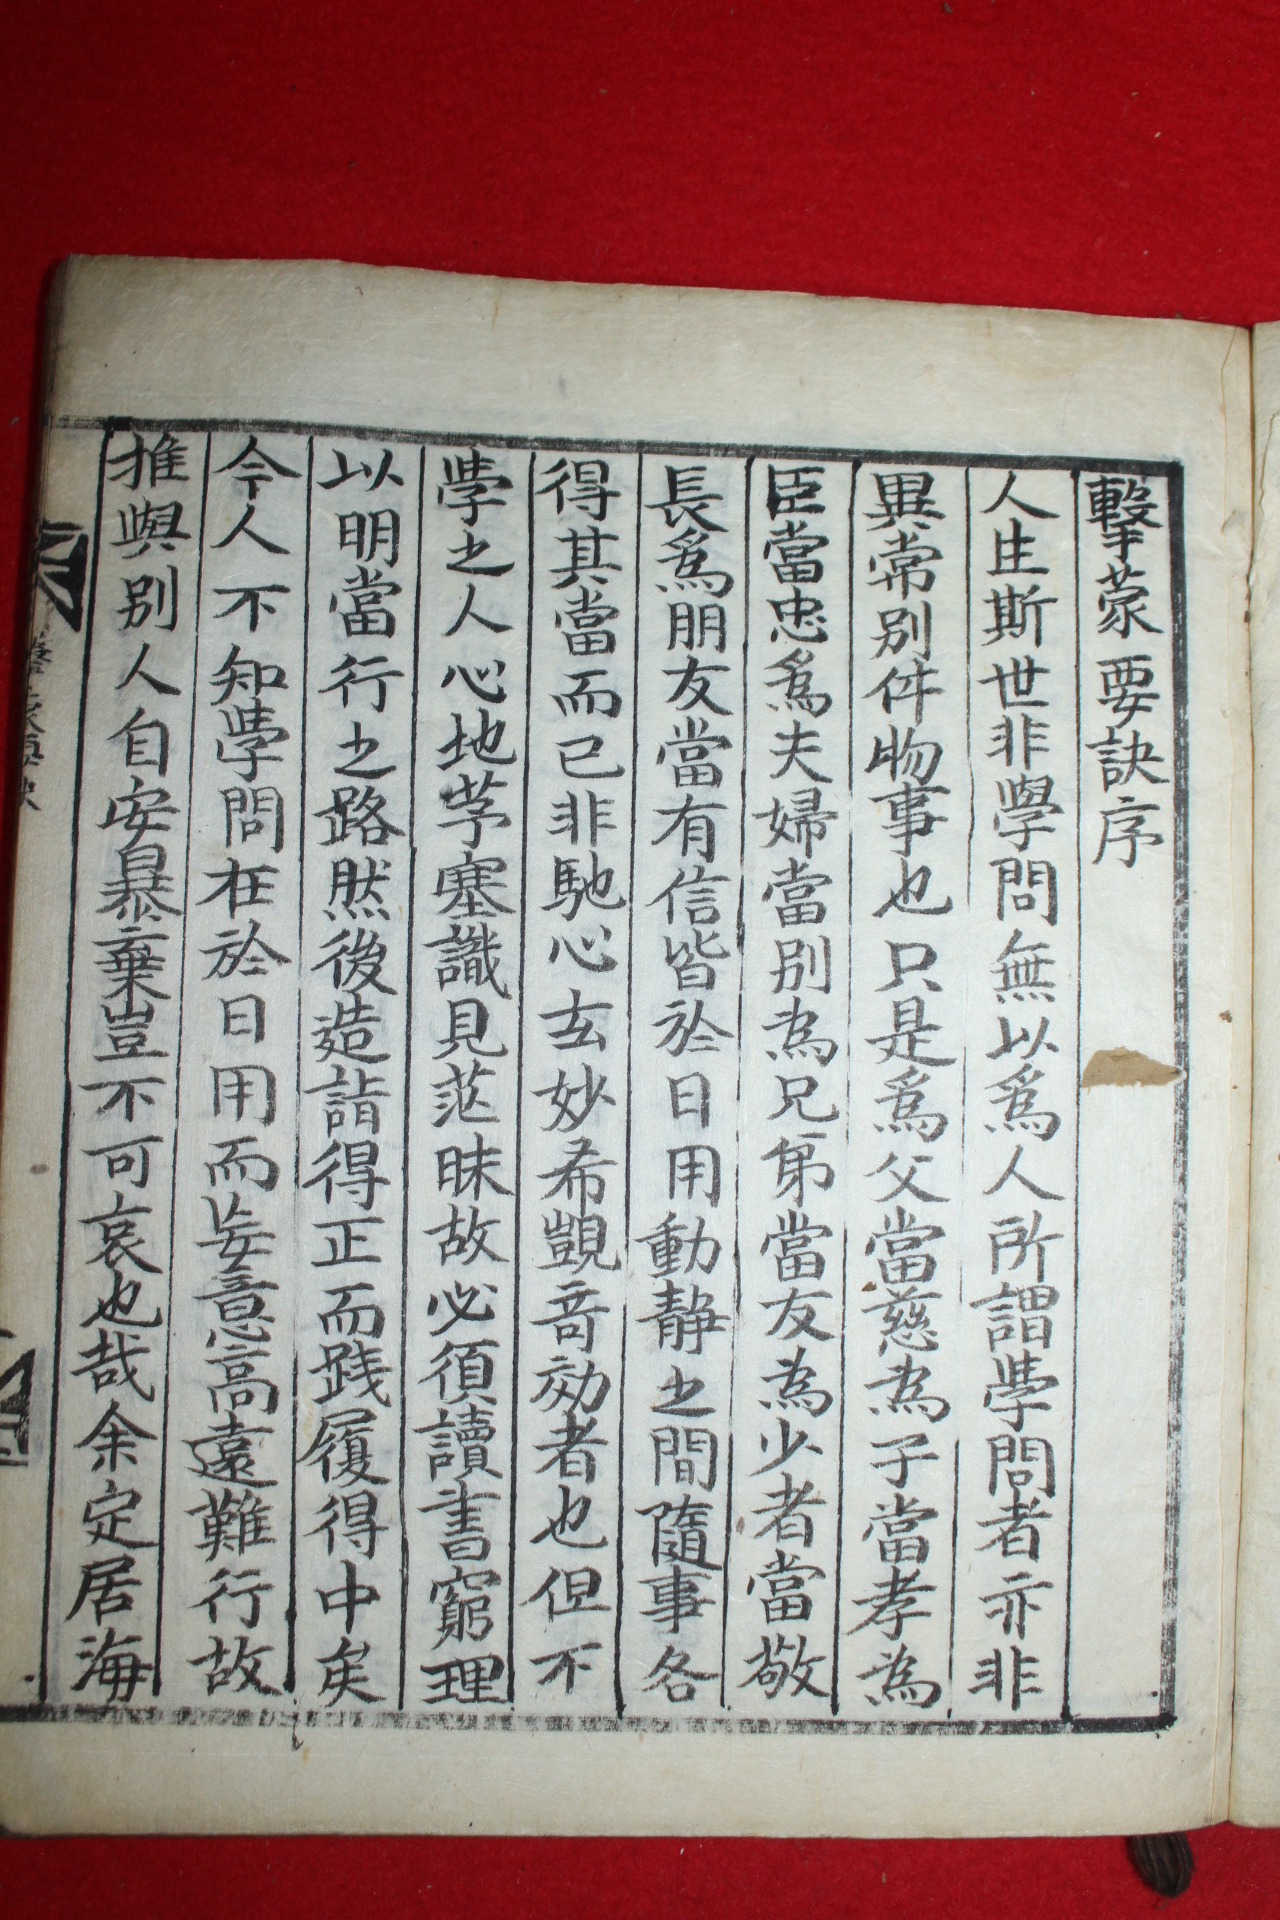 擊蒙要訣序
人生斯世非學問無以爲人所謂學問者亦非
異常別件物事也只是爲父當慈為子當孝為
臣當忠爲夫婦當別為兄弟當友為少者當敬
長爲朋友當有信皆於日用動靜之間隨事各
得其當而已非馳心玄妙希覬奇効者也但不
學之人心地茅塞識見茫昧故必須讀書窮理
以明當行之路然後造詣得正而踐履得中矣
今人不知學問在於日用而妄意高遠難行故
推與別人自安暴棄豈不可哀也哉余定居海
擊蒙要訣